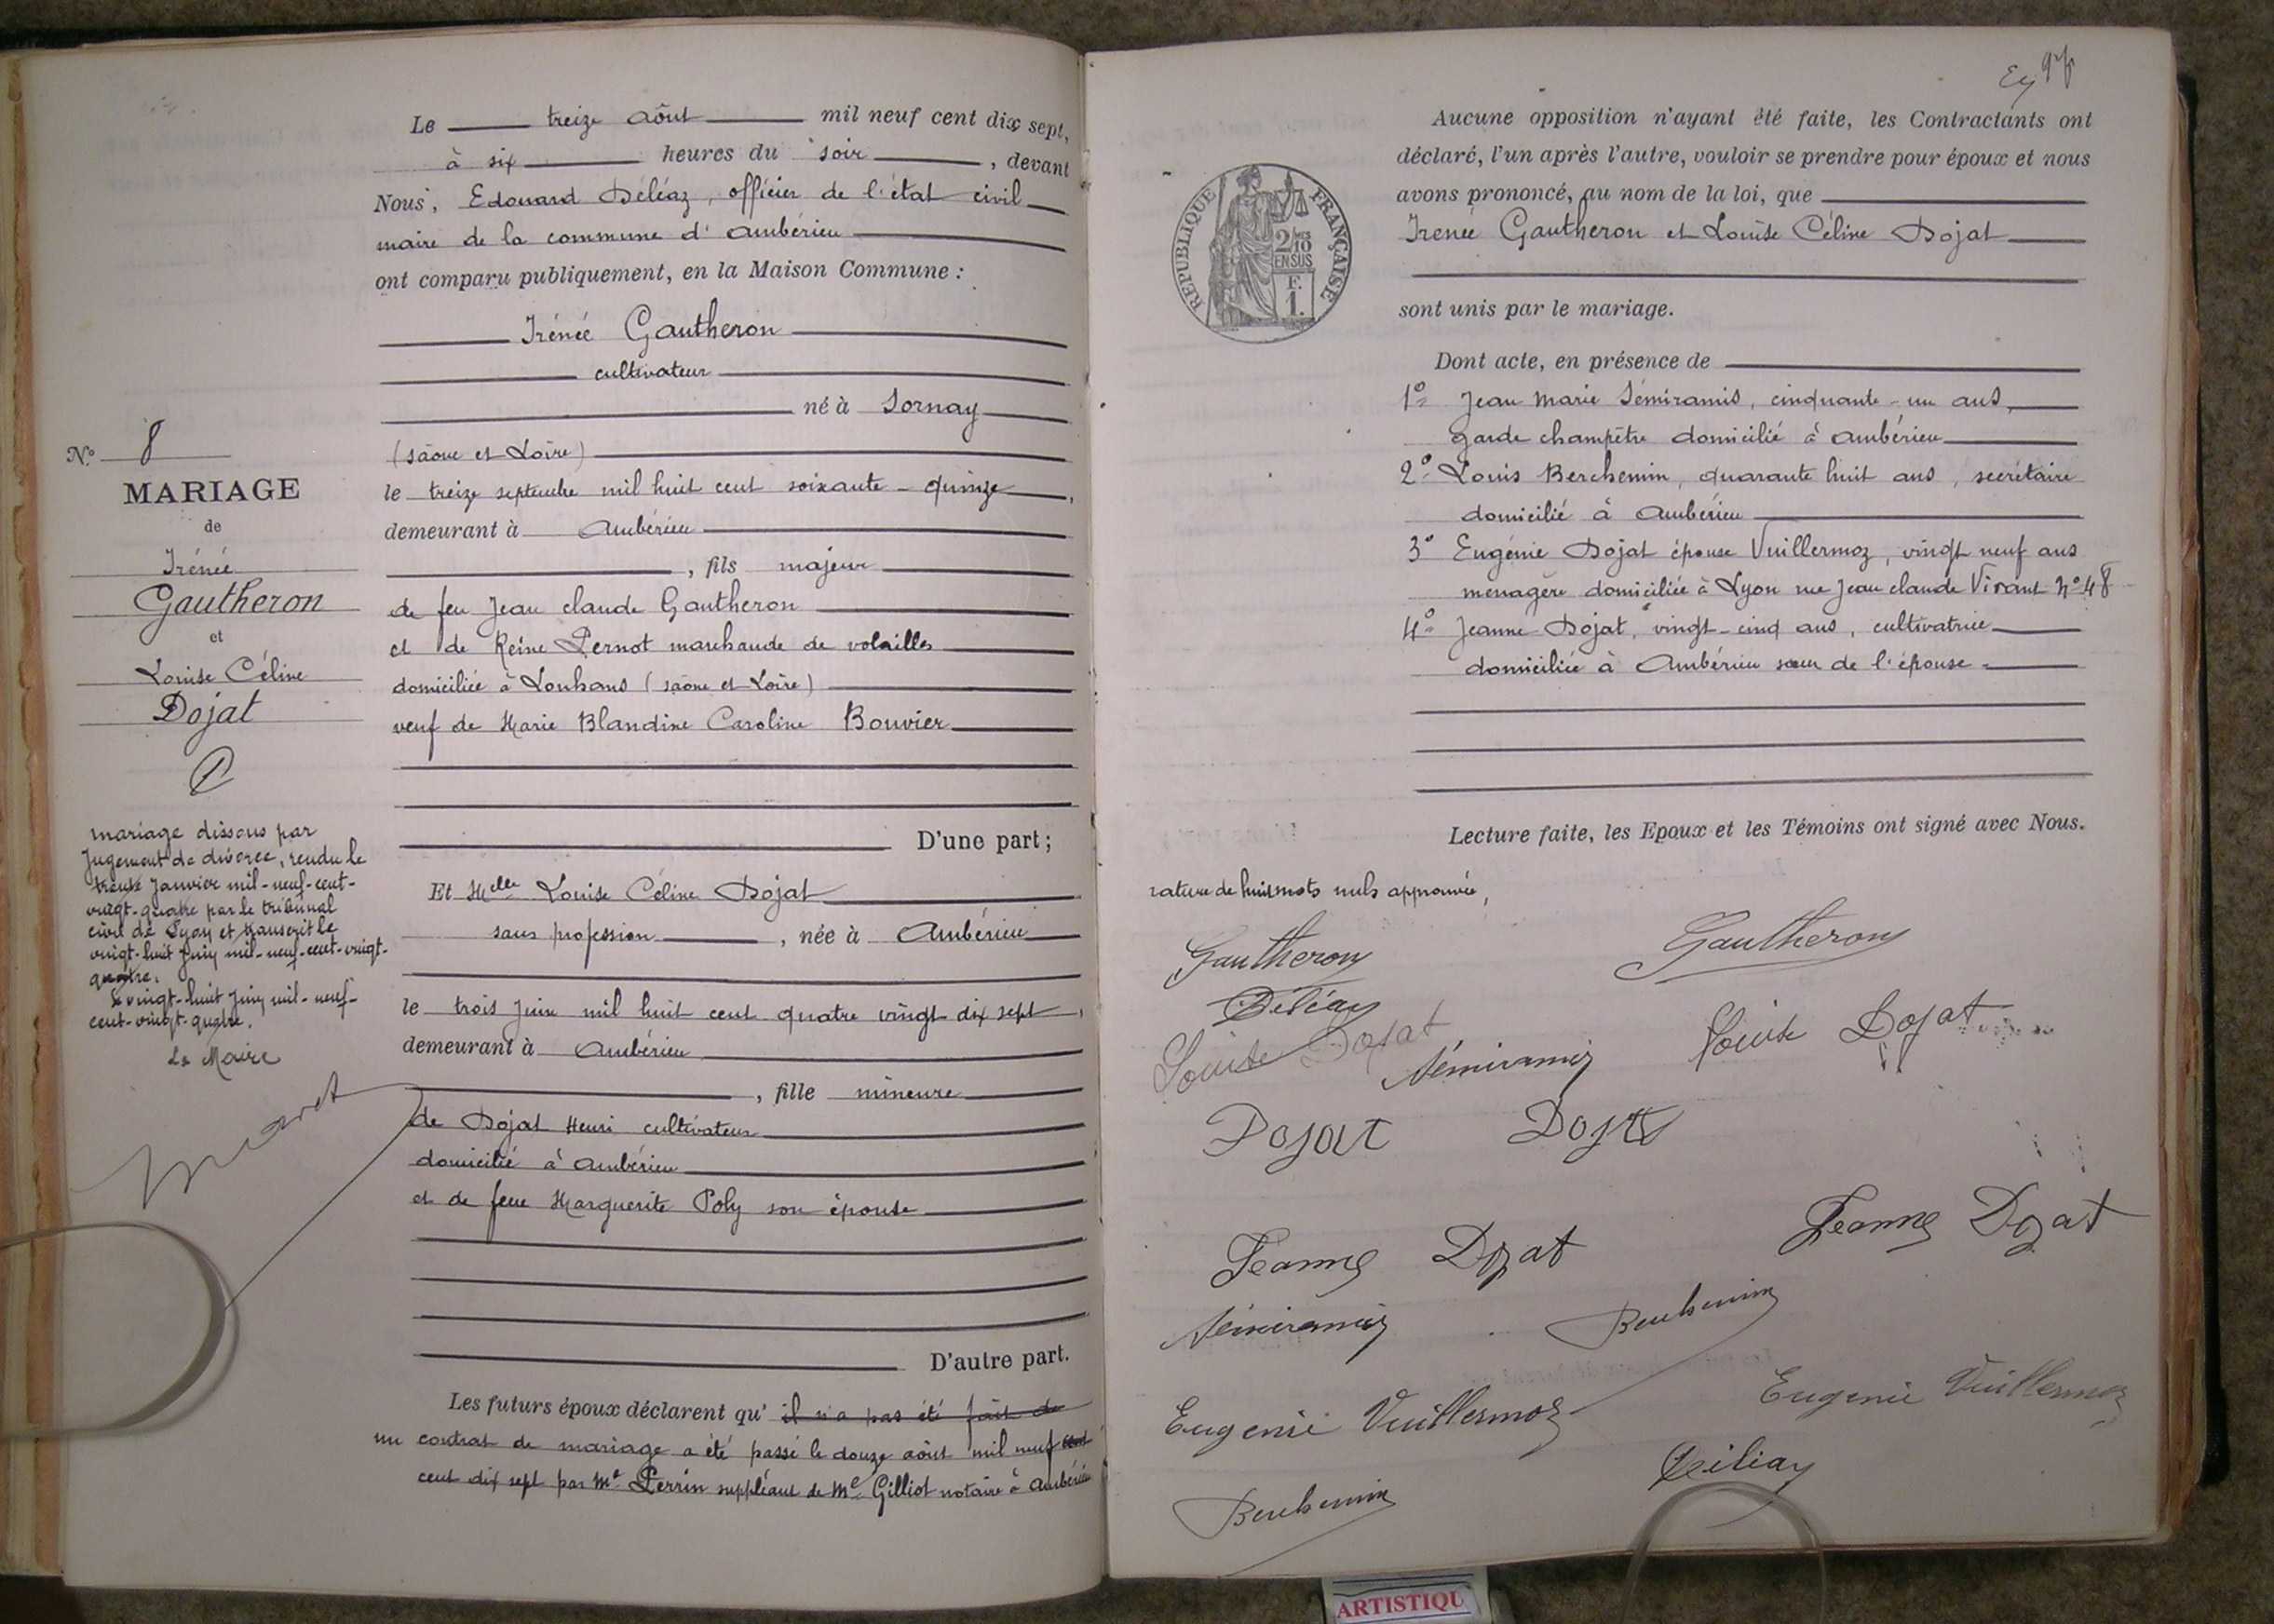 Le treize août mil neuf cent dix sept,
à six heures du soir, devant
Nous, Edouard Déléaz, officier de l'état civil
maire de la commune d'Ambérieu
ont comparu publiquement, en la Maison Commune :
Irénée Gautheron
cultivateur
né à Sornay
(Saône et Loire)
le treize septembre mil huit cent soixante-quinze,
demeurant à Ambérieu
, fils majeur
de feu Jean Claude Gautheron
et de Reine Pernot marchande de volailles
domiciliée à Louhans (Saône et Loire)
veuf de Marie Blandine Caroline Bouvier
D'une part ;
Et Melle Louise Céline Dojat
sans profession, née à Ambérieu
le trois juin mil huit cent quatre vingt dix sept,
demeurant à Ambérieu
, fille mineure
de Dojat Henri cultivateur
domicilié à Ambérieu
et de feue Marguerite Poly son épouse
D'autre part.
Les futurs époux déclarent qu' il n'a pas été fait de
un contrat de mariage a été passé le douze août mil neuf cent
cent dix sept par Me Perrin suppléant de Me Gilliot notaire à Ambérieu
No 8
MARIAGE
de
Irénée
Gautheron
et
Louise Céline
Dojat
mariage dissous par
jugement de divorce, rendu le
janvier mil-neuf-cent-
vingt-quatre par le tribunal
civil de Lyon et transcrit le
vingt-huit juin mil-neuf-cent-vingt-
quatre.
Le vingt-huit juin mil-neuf-
cent-vingt-quatre.
Le Maire
REPUBLIQUE FRANÇAISE
2/10
EN SUS
F.
1.
Aucune opposition n'ayant été faite, les Contractants ont
déclaré, l'un après l'autre, vouloir se prendre pour époux et nous
avons prononcé, au nom de la loi, que
Irénée Gautheron et Louise Céline Dojat
sont unis par le mariage.
Dont acte, en présence de
1o Jean Marie Sémiramis, cinquante-un ans,
garde champêtre domicilié à Ambérieu
2o Louis Berchemin, quarante huit ans, secrétaire
domicilié à Ambérieu
3o Eugénie Dojat épouse Vuillermoz, vingt neuf ans
ménagère domiciliée à Lyon rue Jean Claude Vivant No 48
4o Jeanne Dojat, vingt-cinq ans, cultivatrice
domiciliée à Ambérieu sœur de l'épouse
Lecture faite, les Epoux et les Témoins ont signé avec Nous.
rature de huit mots nuls approuvée,
Gautheron Gautheron
Déléaz
Louise Dojat Sémiramis Louise Dojat
Dojat Dojat
Jeanne Dojat Jeanne Dojat
Sémiramis Berchemin
Eugenie Vuillermoz Eugenie Vuillermoz
Déléaz
Berchemin
ARTISTIQU